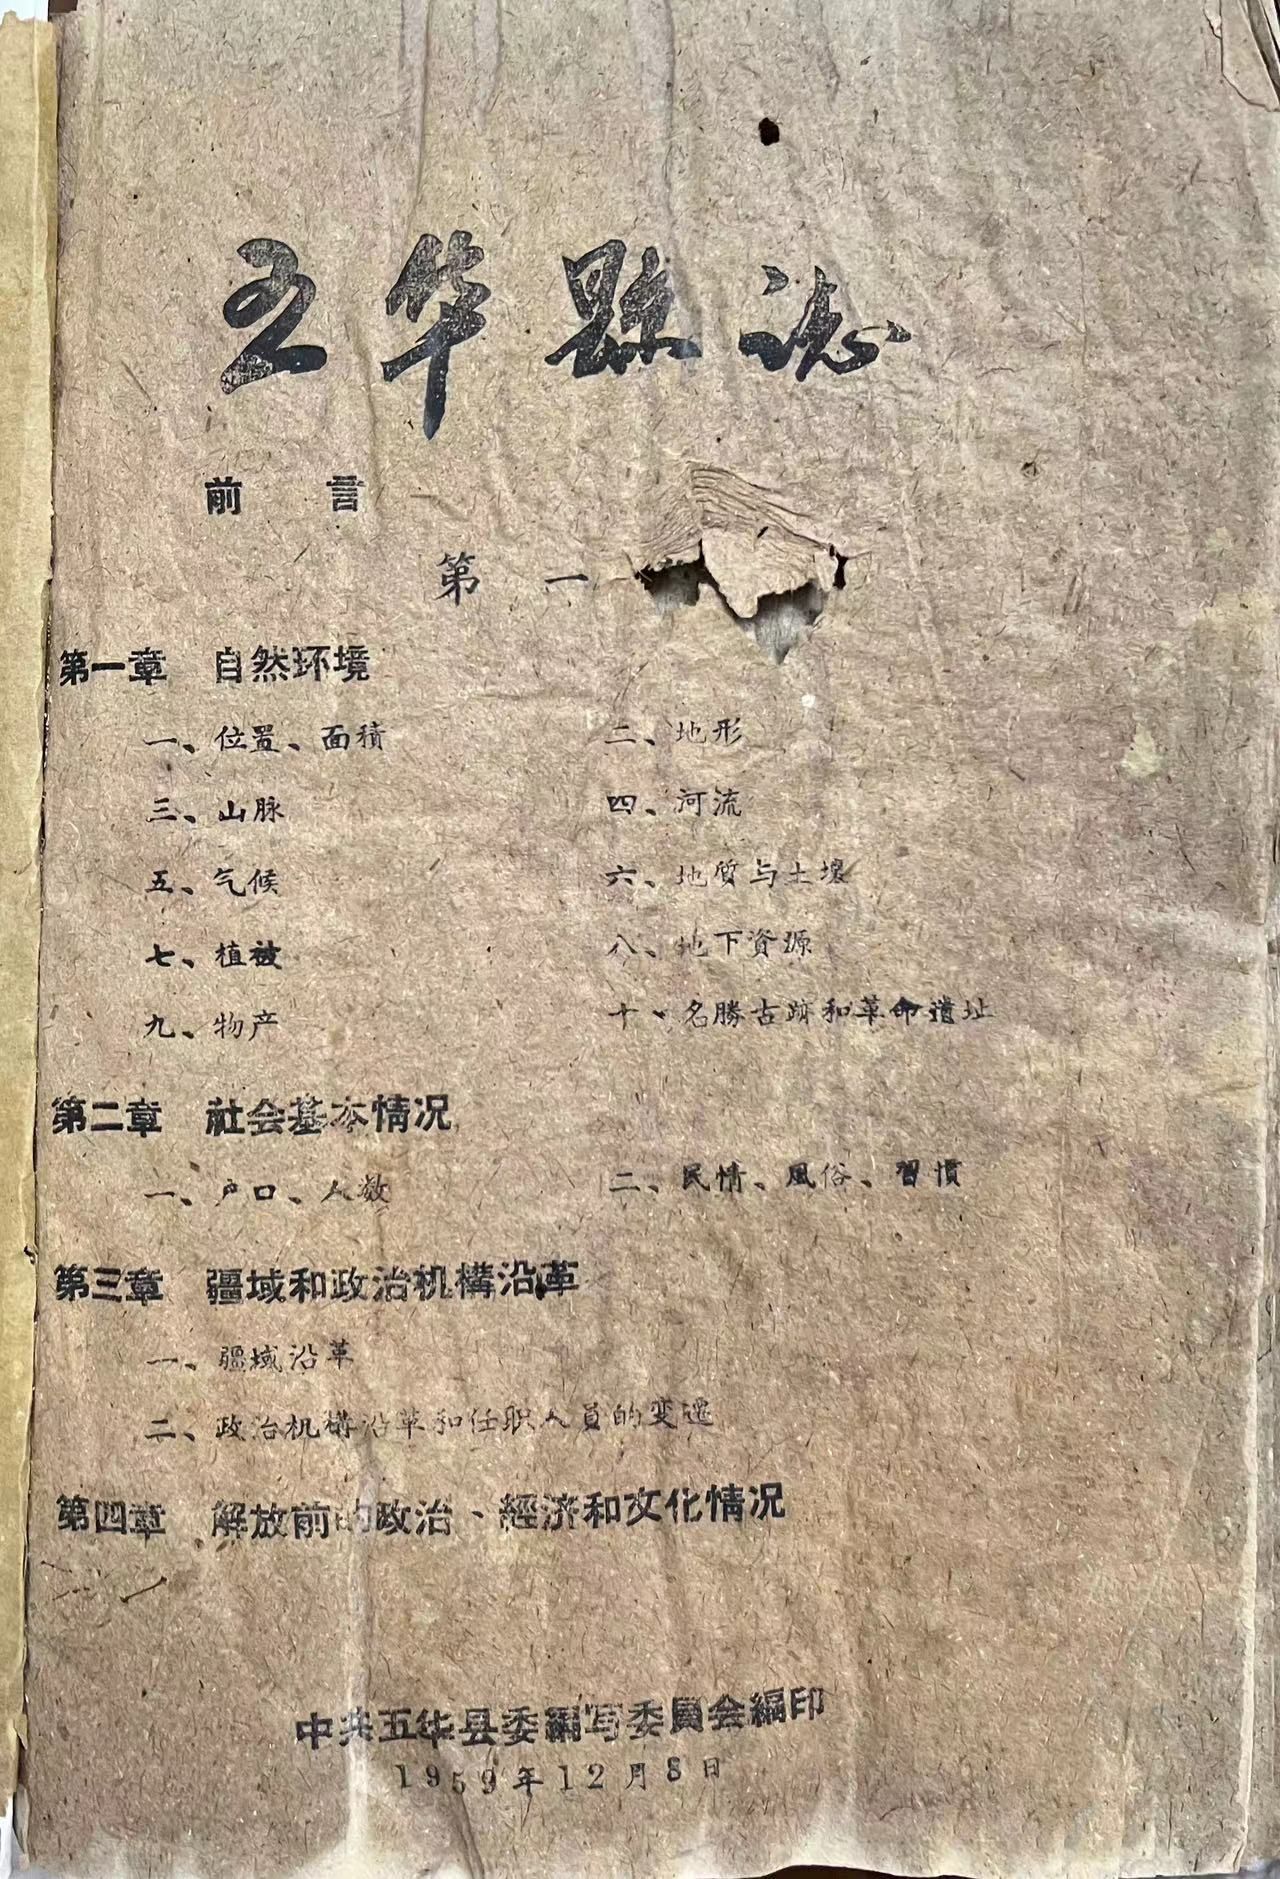 五华縣誌
前言
第一
第一章 自然环境
一、位置、面積 二、地形
三、山脉 四、河流
五、气候 六、地质与土壤
七、植被 八、地下資源
九、物产 十、名勝古跡和革命遺址
第二章 社会基本情况
一、户口、人数 二、民情、風俗、習慣
第三章 疆域和政治机構沿革
一、疆域沿革
二、政治机構沿革和任职人員的変遷
第四章 解放前的政治、經济和文化情况
中共五华县委編写委員会編印
1959年12月8日